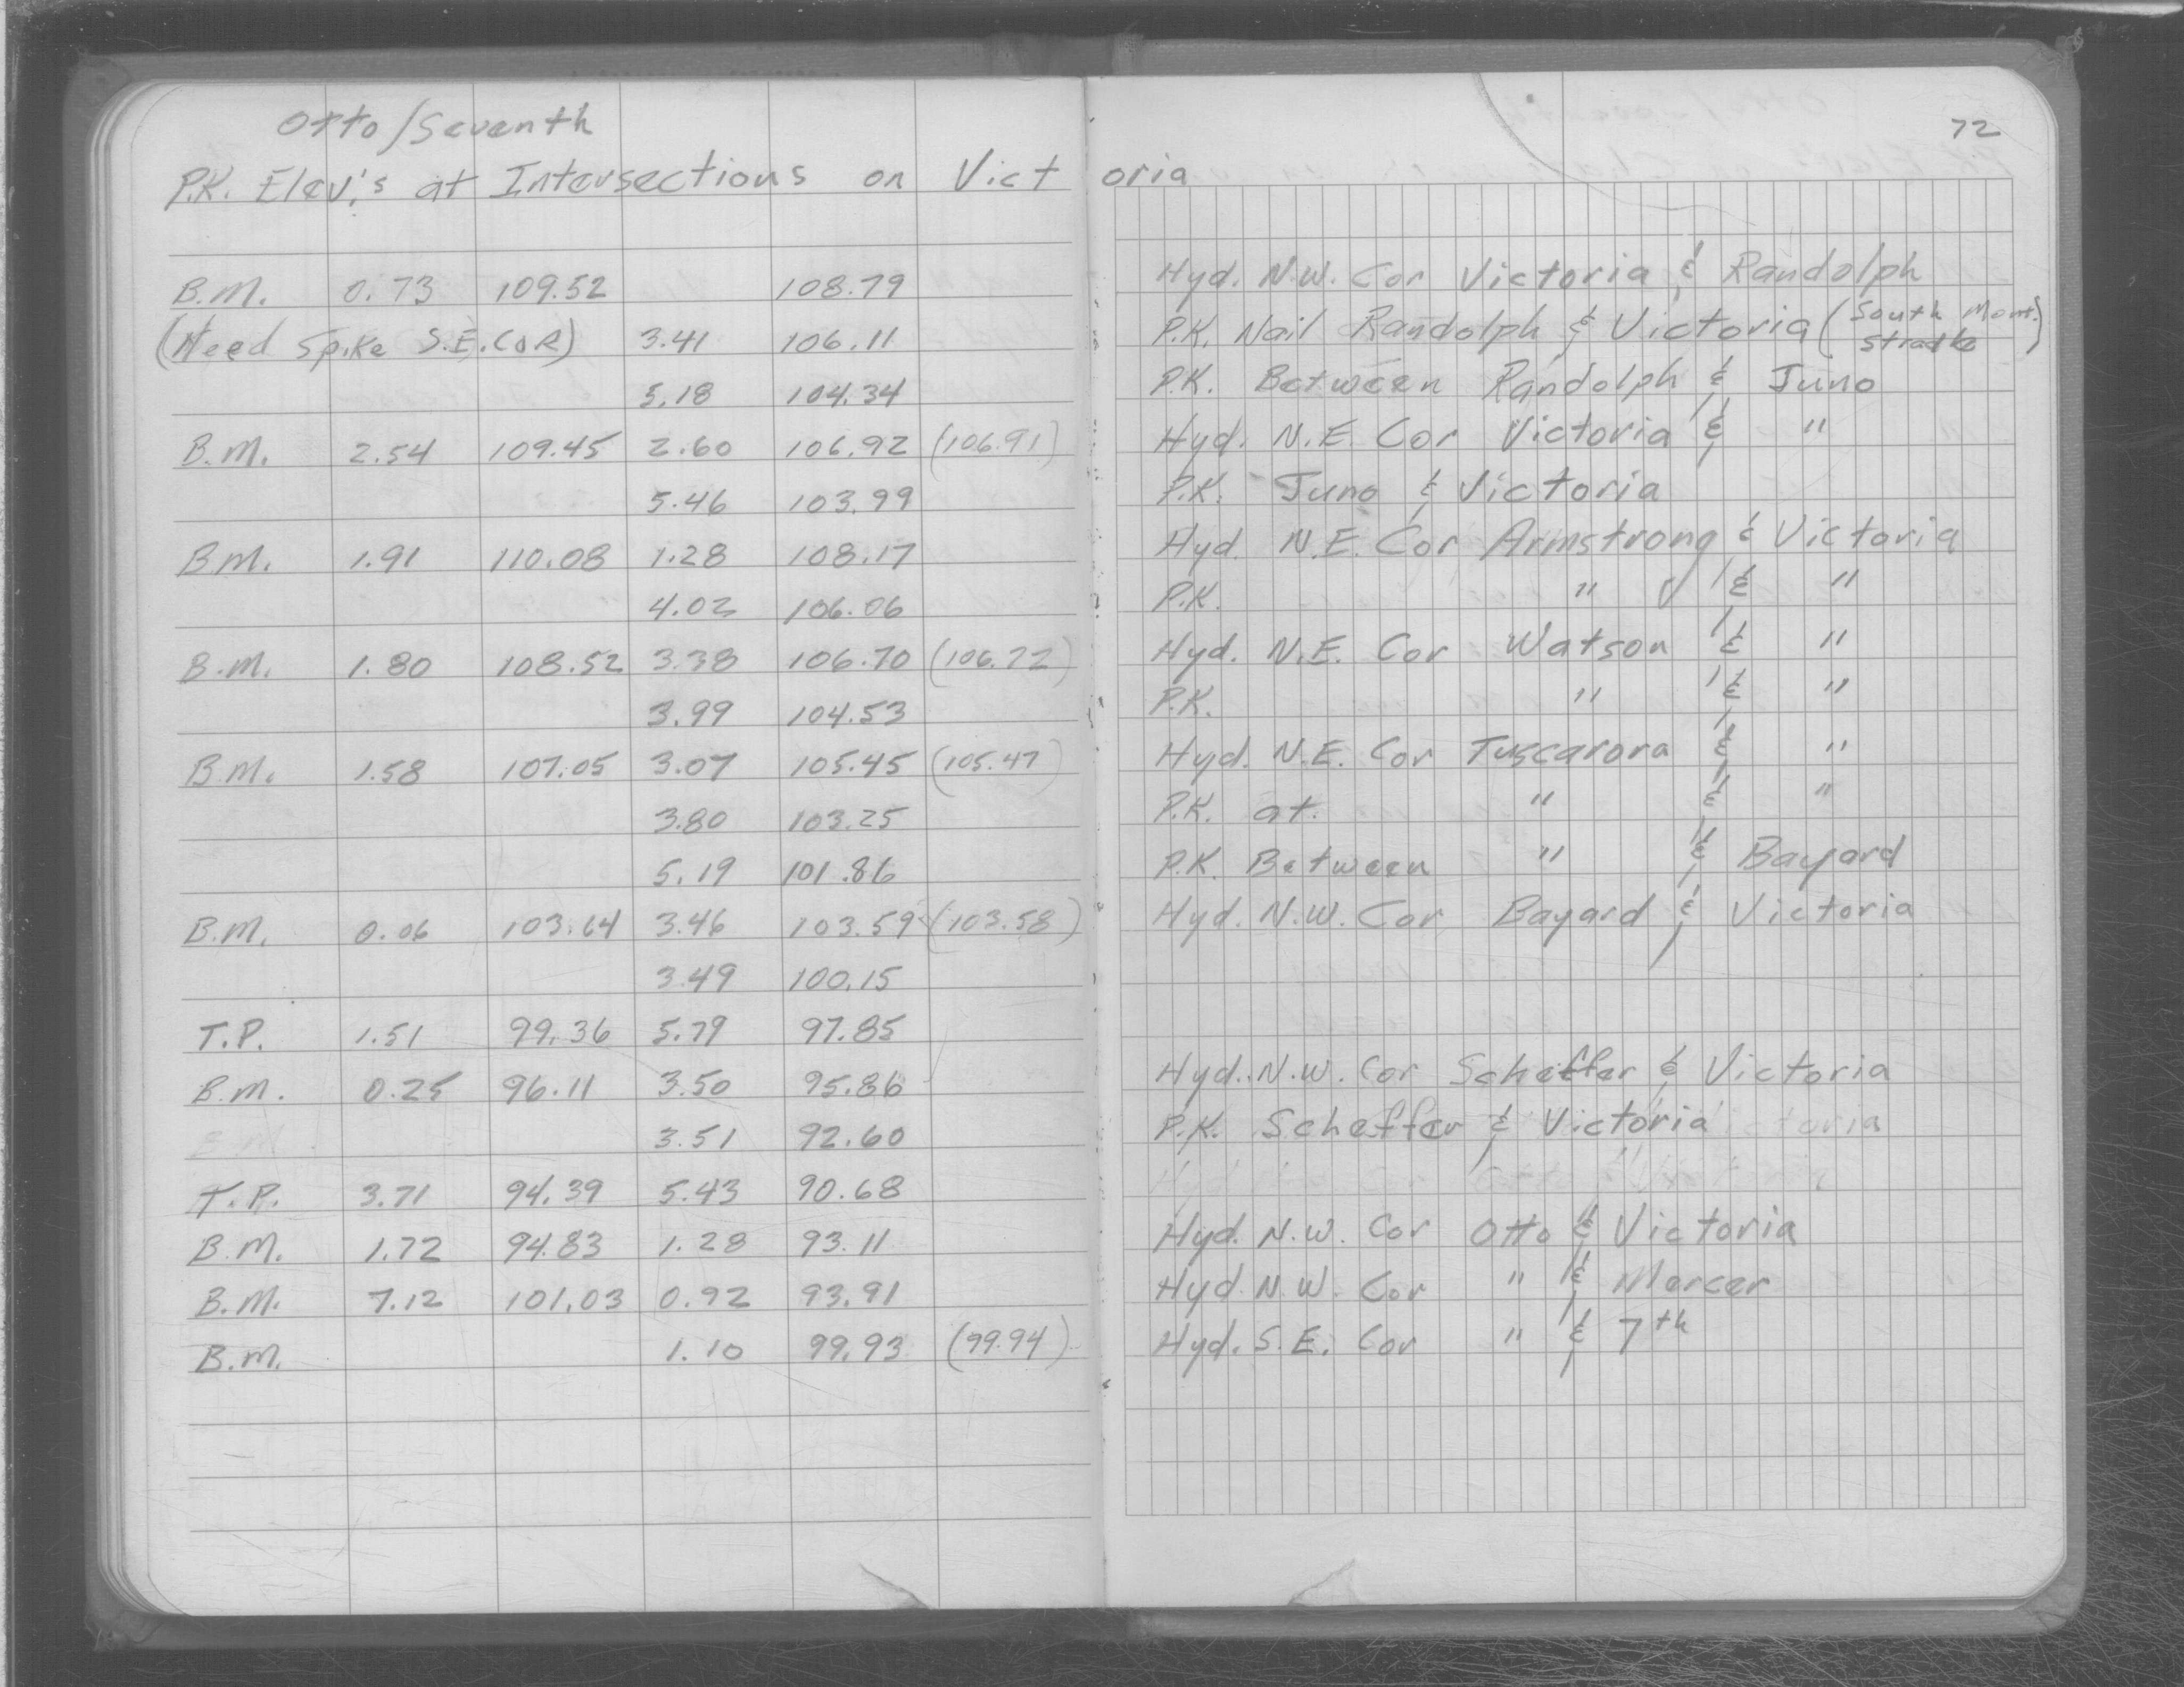 Otto/Seventh
72
P.K. Elev.'s at Intersections on Victoria
B.M. 0.73 109.52 108.79 Hyd. N.W. Cor Victoria & Randolph
(Need Spike S.E. COR) 3.41 106.11 P.K. Nail Randolph & Victoria (South Mont.
5.18 104.34 P.K. Between Randolph & Juno
B.M. 2.54 109.45 2.60 106.92 (106.91) Hyd. N.E. Cor Victoria & "
5.46 103.99 P.K. Juno & Victoria
B.M. 1.91 110.08 1.28 108.17 Hyd. N.E. Cor Armstrong & Victoria
4.02 106.06 P.K. " & "
B.M. 1.80 108.52 3.38 106.70 (106.72) Hyd. N.E. Cor Watson & "
3.99 104.53 P.K. " & "
B.M. 1.58 107.05 3.07 105.45 (105.47) Hyd. N.E. Cor Tuscarora & "
3.80 103.25 P.K. at. " & "
5.19 101.86 P.K. Between " & Bayard
B.M. 0.06 103.64 3.46 103.59 (103.58) Hyd. N.W. Cor Bayard & Victoria
3.49 100.15
T.P. 1.51 99.36 5.79 97.85
B.M. 0.25 96.11 3.50 95.86 Hyd. N.W. Cor Scheffer & Victoria
3.51 92.60 P.K. Scheffer & Victoria
T.P. 3.71 94.39 5.43 90.68
B.M. 1.72 94.83 1.28 93.11 Hyd. N.W. Cor Otto & Victoria
B.M. 7.12 101.03 0.92 93.91 Hyd. N.W. Cor " & Mercer
B.M. 1.10 99.93 (99.94) Hyd. S.E. Cor " & 7th